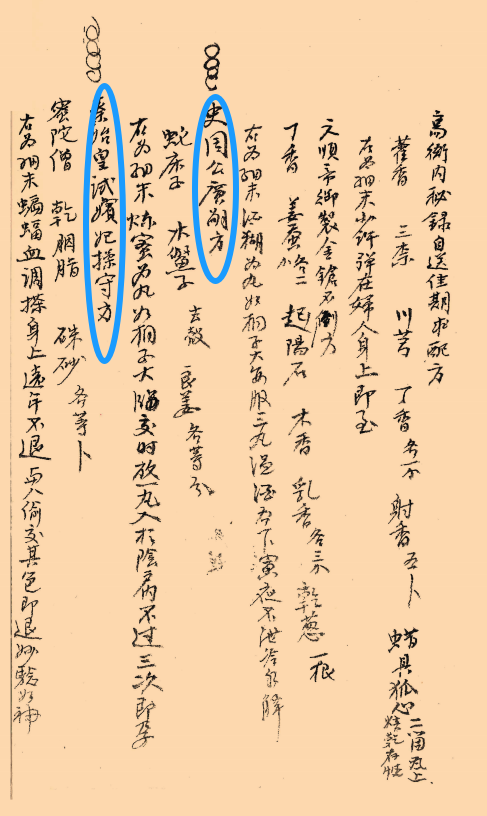 高衙内秘錄自送佳期求配方
藿香 三柰 川芎 丁香各一分 射香五卜 蜡具狐心二个瓦上焙乾存性
右為細末少許彈在婦人身上即至
元順帝御製金鎗不倒方
丁香 姜蚕各二分 起陽石 木香 乳香各三分 乾葱一根
右為細末江糊為丸如桐子大每服三丸温酒吞下演夜不泄冷水解
史国公廣嗣方
蛇床子 木鱉子 去殼 良姜各等分
右為細末煉蜜為丸如桐子大臨交时放一丸入於陰户内不过三次即孕
秦始皇試嬪妃操守方
密陀僧 乾胭脂 硃砂各等卜
右為細末蝙蝠血调搽身上遠年不退與人偷交其色即退妙驗如神